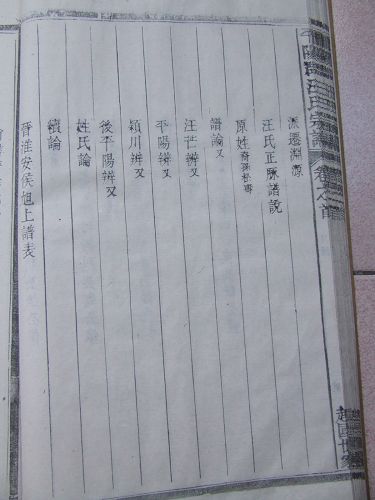 平陽汪氏宗譜 卷之首
派遷淵源
汪氏正脉譜說
原姓
譜論又
汪芒辨又
平陽辨又
潁川辨又
後平陽辨又
姓氏論
續論
晉淮安侯旭上譜表
越國世家